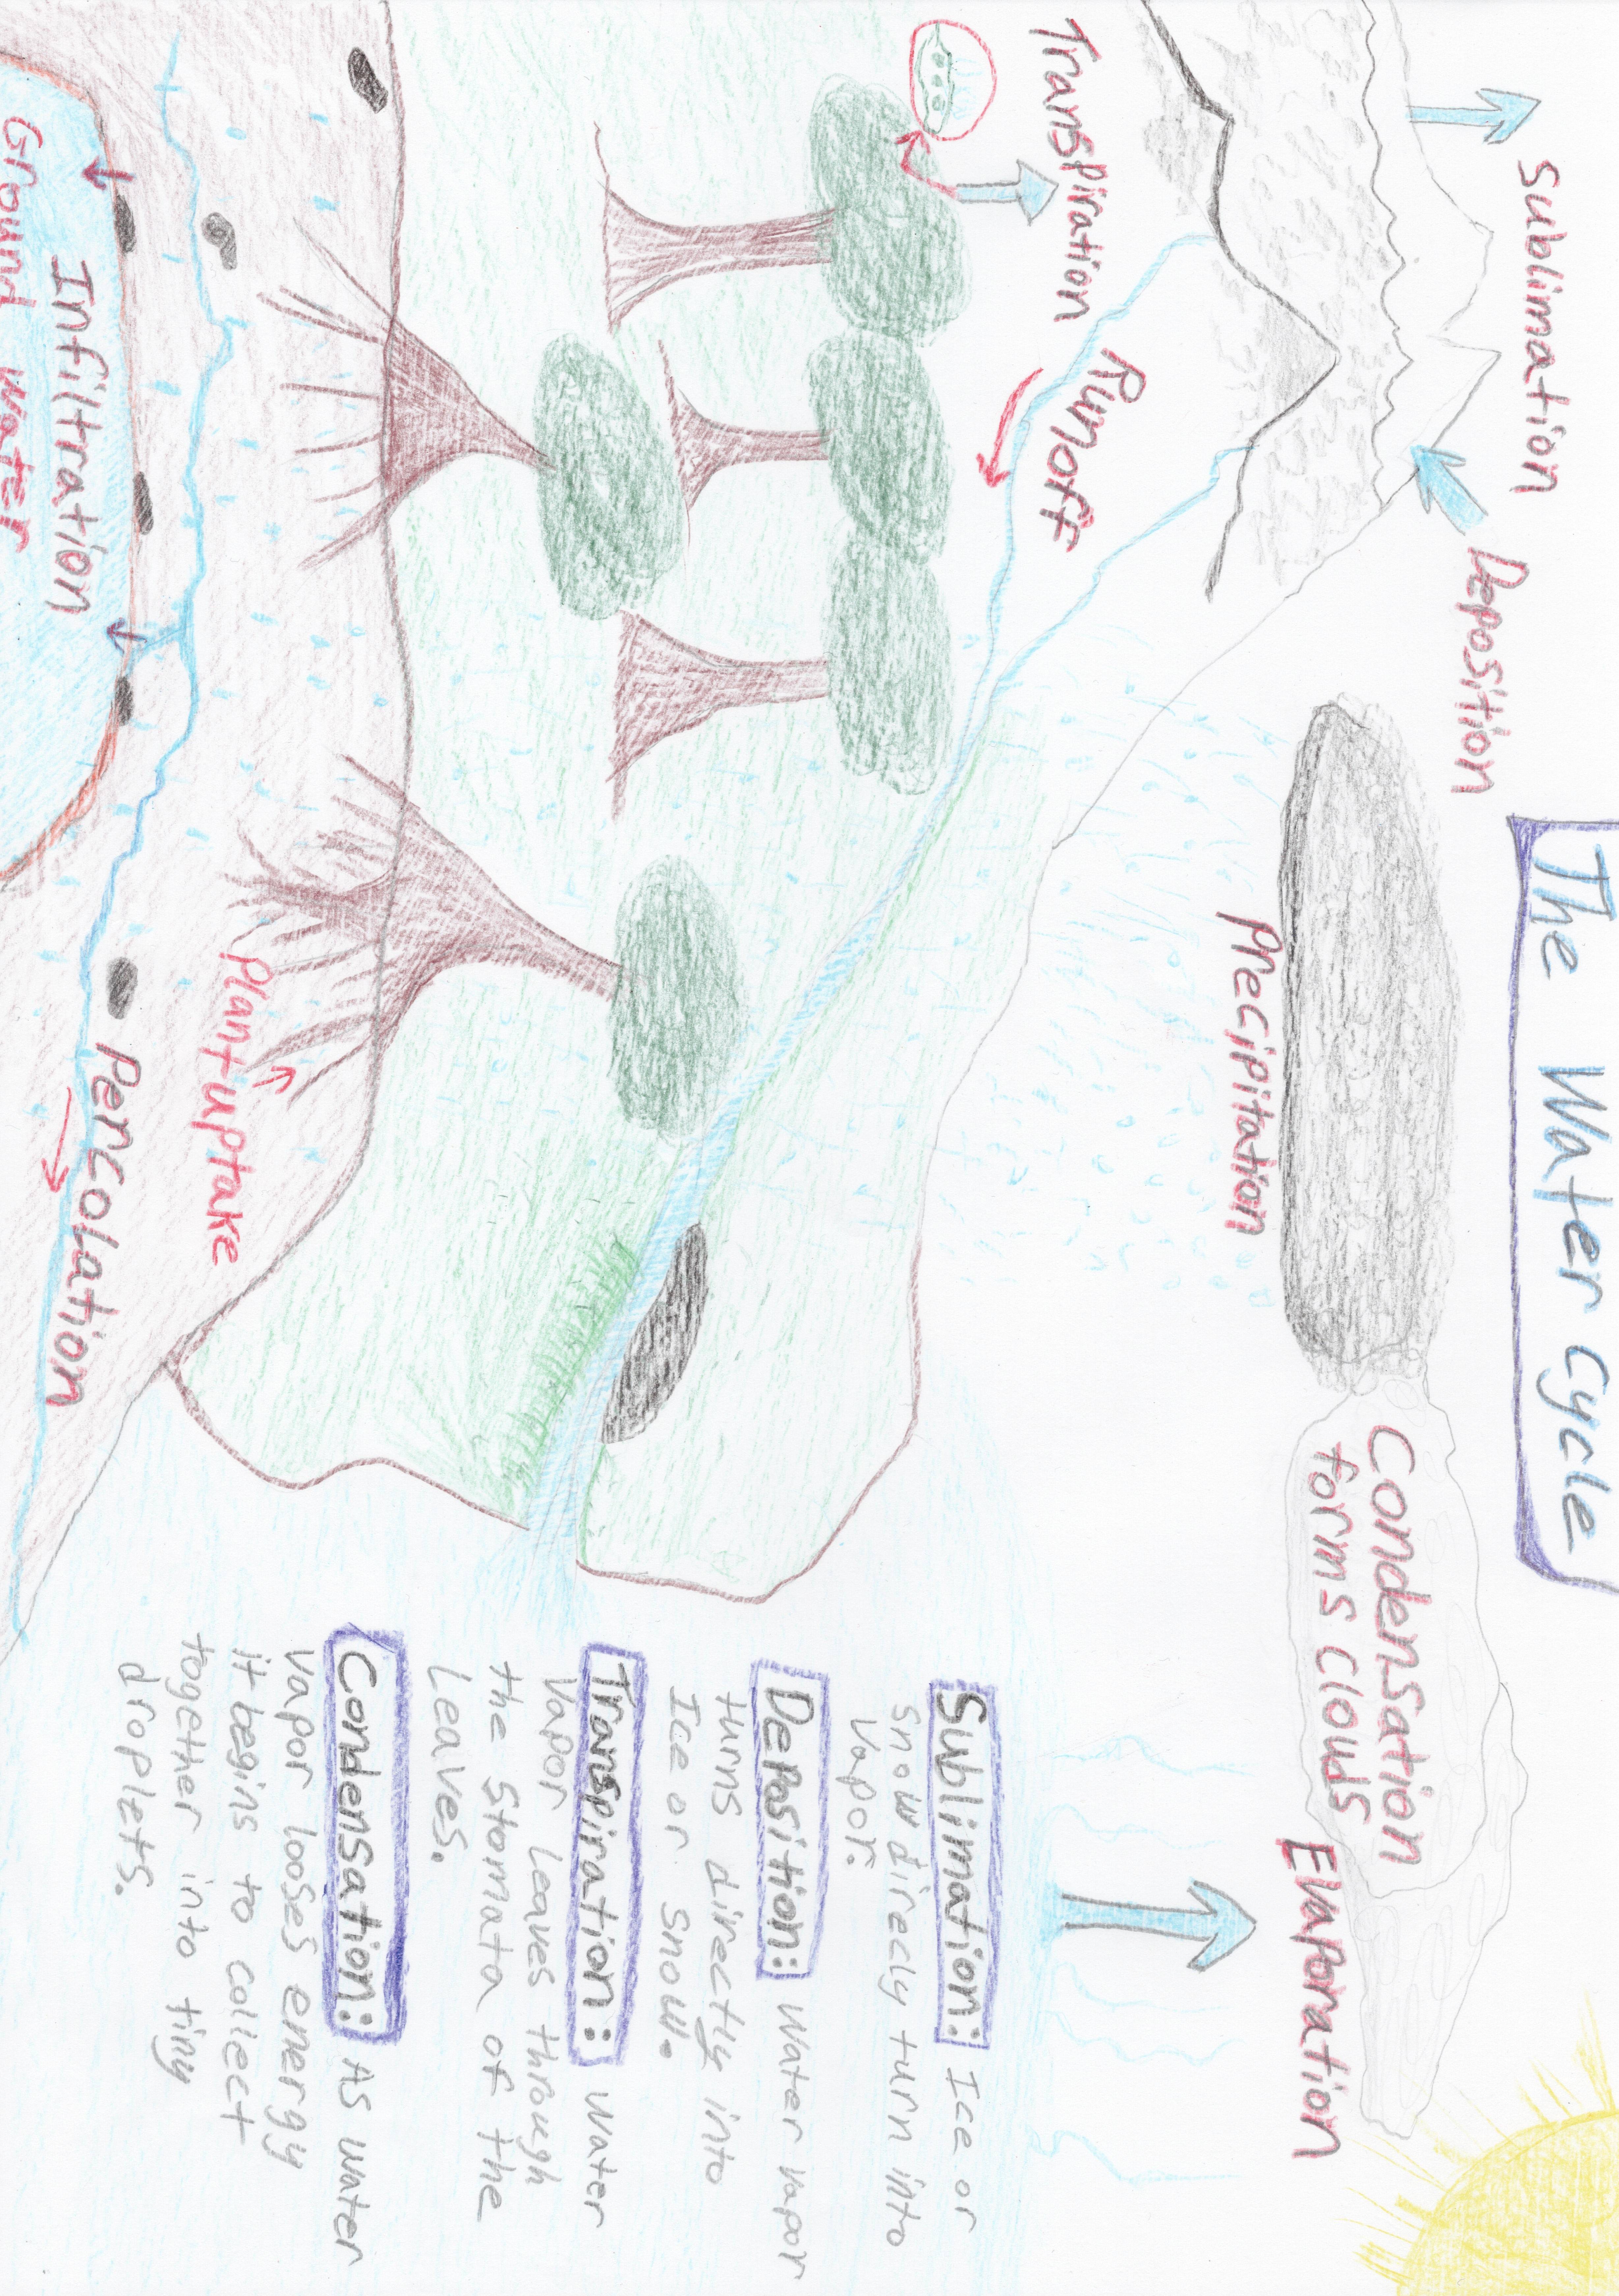 The Water Cycle
Sublimation
Deposition
Condensation
forms clouds
Evaporation
Precipitation
Transpiration
Runoff
Plant uptake
Percolation
Infiltration
Ground water
Sublimation: Ice or
snow direcly turn into
vapor.
Deposition: Water vapor
turns directly into
Ice or snow.
Transpiration: Water
Vapor leaves through
the Stomata of the
Leaves.
Condensation: As water
vapor looses energy
it begins to collect
together into tiny
droplets.